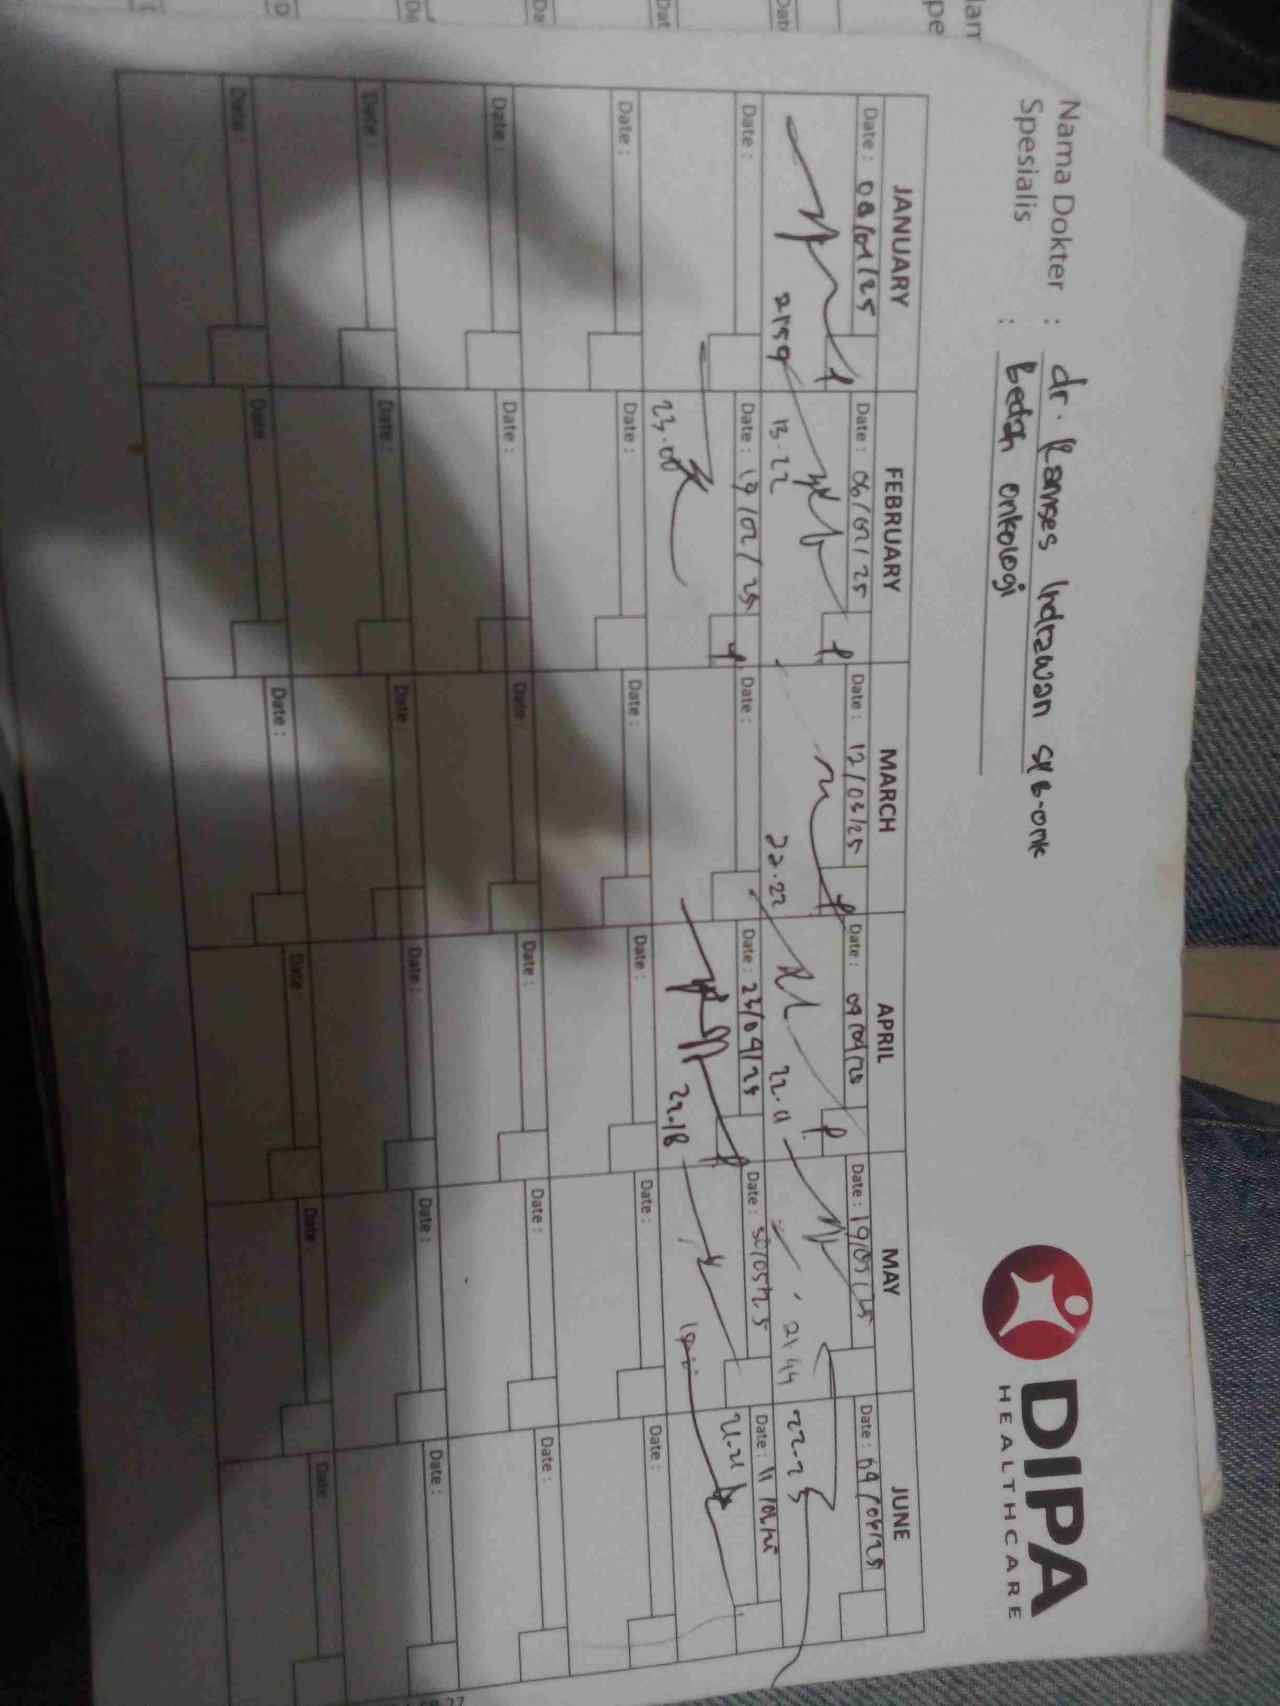 Nama Dokter : dr. Ramses Indrawan SpB-onk
Spesialis : Bedah onkologi
DIPA
HEALTHCARE
JANUARY FEBRUARY MARCH APRIL MAY JUNE
Date : 08/01/25 Date : 06/02/25 Date : 12/03/25 Date : 09/04/25 Date : 19/05/25 Date : 04/06/25
2159 13.22 22.22 22.11 21.44 22.25
Date : Date : 19/02/25 Date : Date : 23/04/25 Date : 30/05/25 Date : 11
23.00 22.18 21.21
Date : Date : Date : Date : Date : Date :
Date : Date : Date : Date : Date : Date :
Date : Date : Date : Date : Date : Date :
Date : Date : Date : Date : Date : Date :